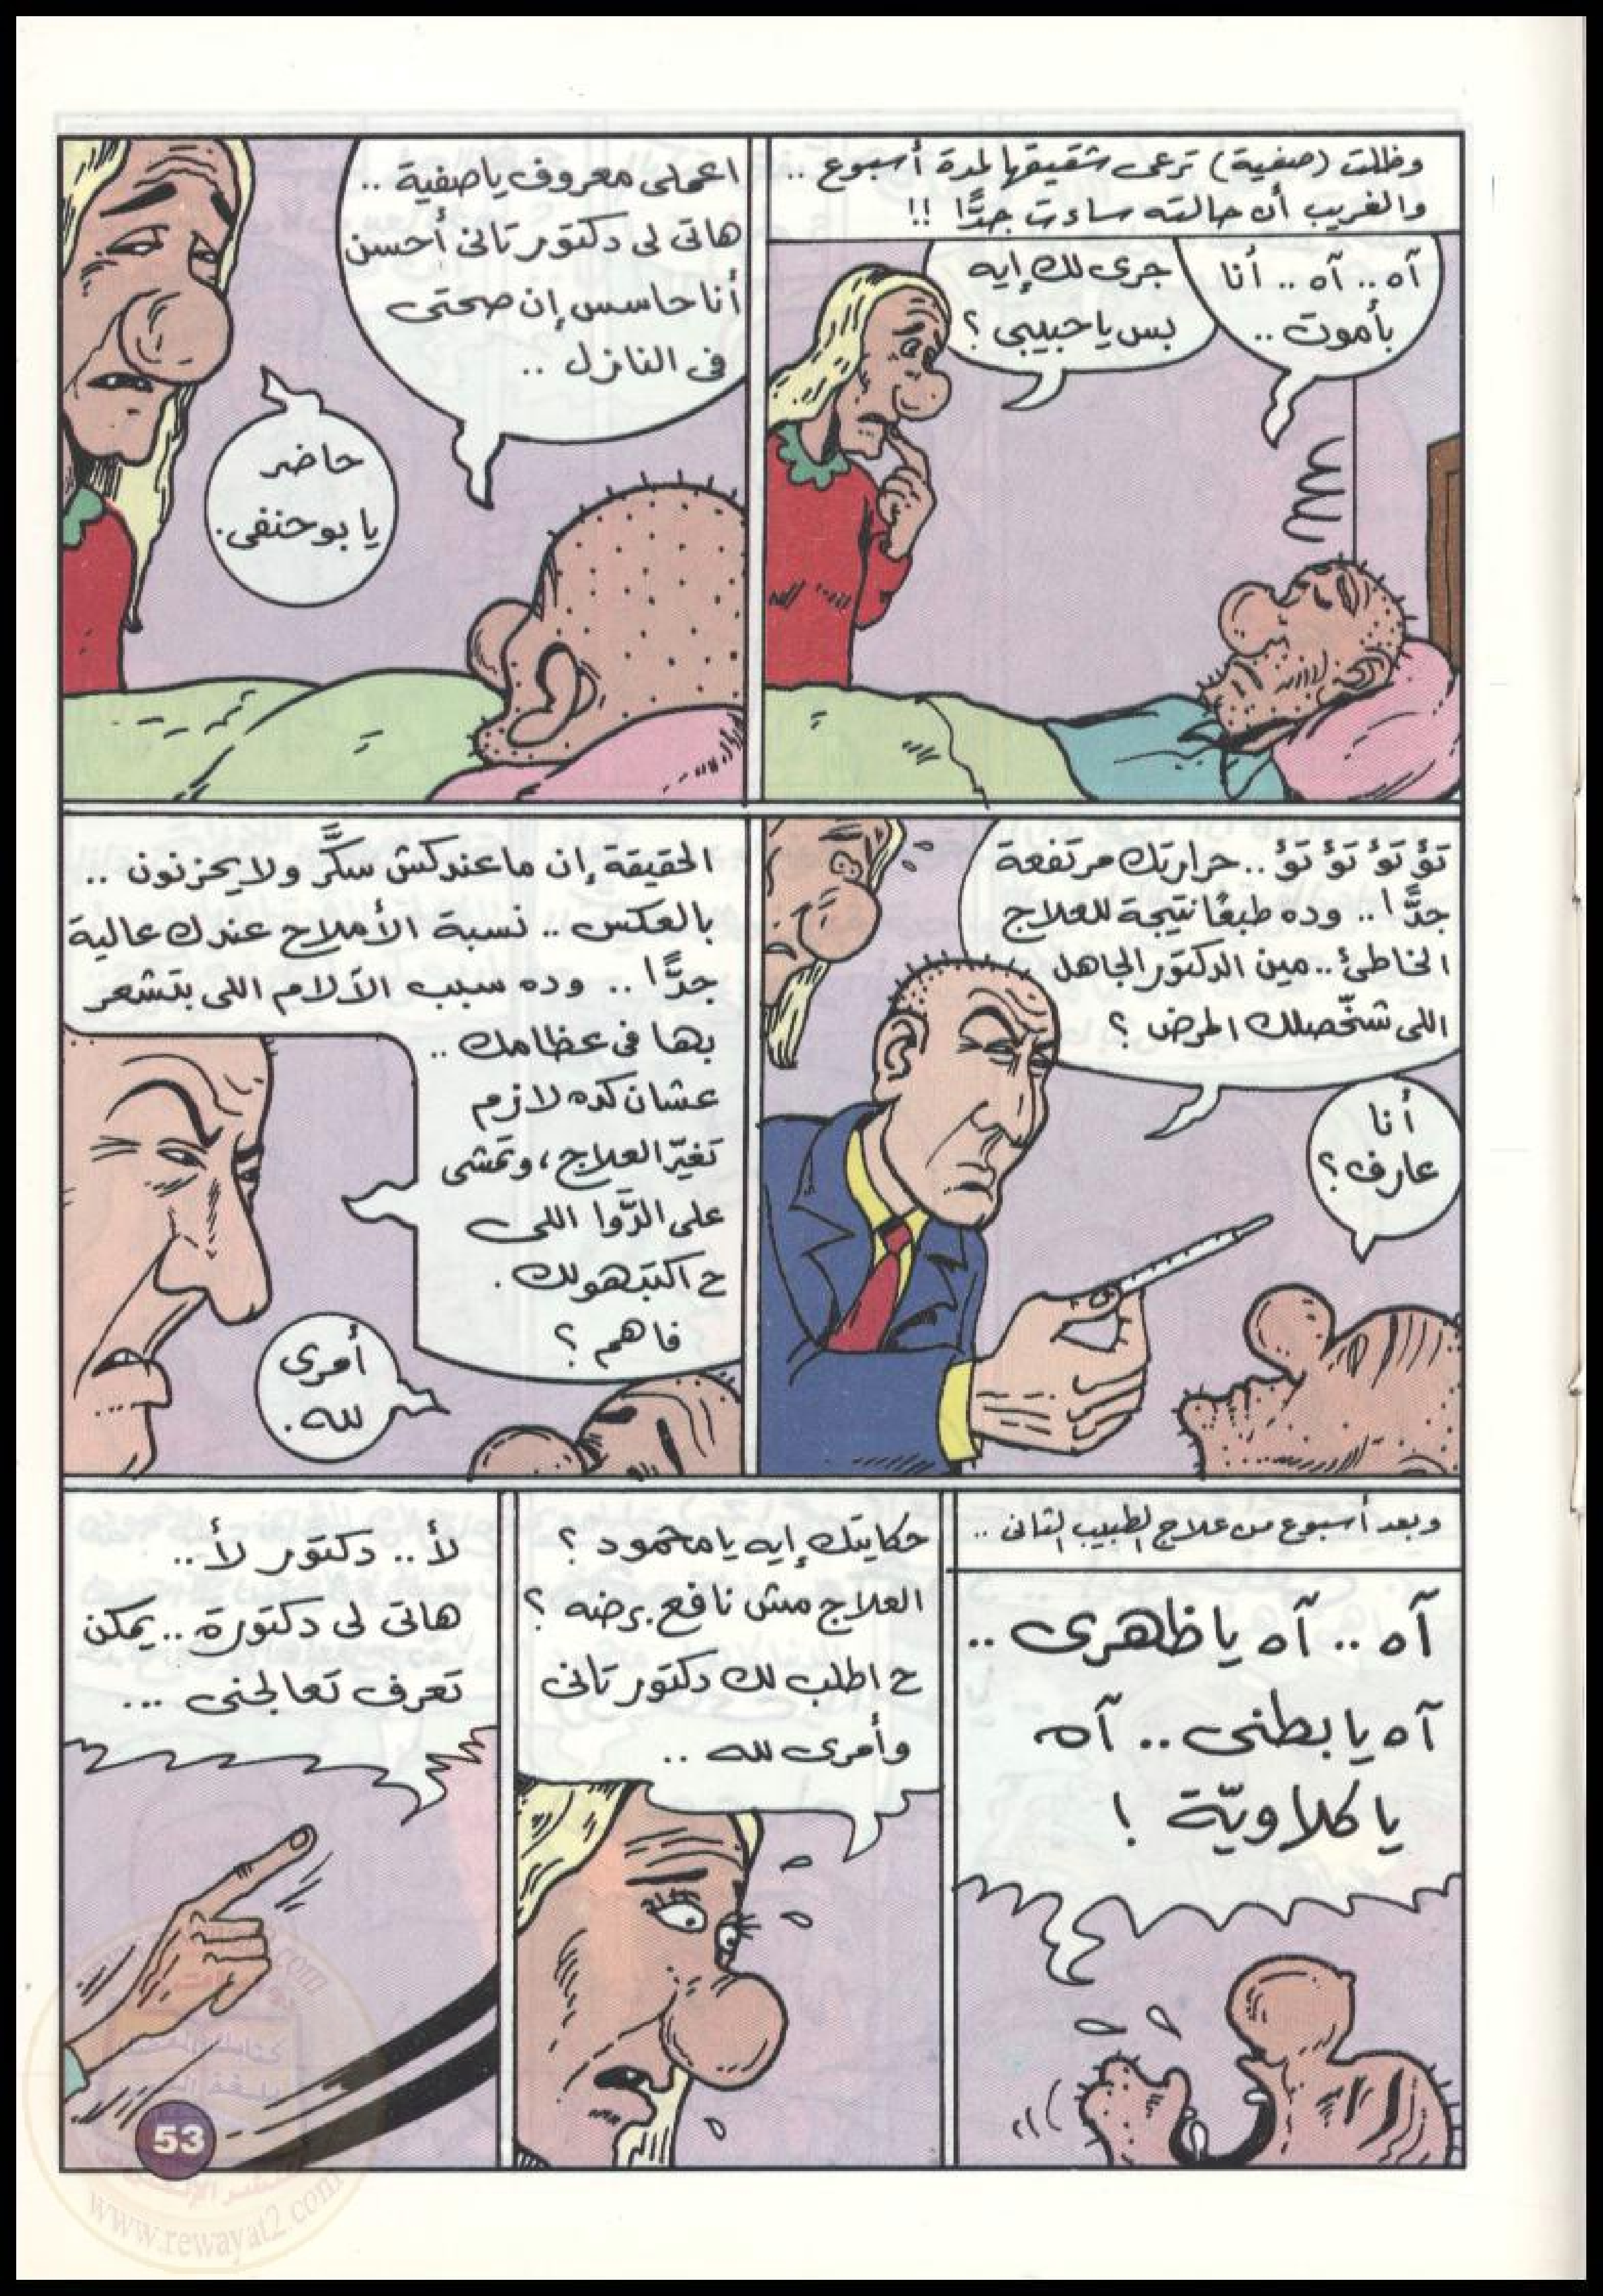 وظلت (صفية) ترعى شقيقها لمدة أسبوع ..
والغريب أن حالته ساءت جدًّا !!
آه .. آه .. أنا
بأموت ..
جرى لك إيه
بس يا حبيبى ؟
اعملى معروف يا صفية ..
هاتى لى دكتور تانى أحسن
أنا حاسس إن صحتى
فى النازل ..
حاضر
يا بو حنفى.
تؤ تؤ تؤ تؤ .. حرارتك مرتفعة
جدًّا .. وده طبعًا نتيجة للعلاج
الخاطئ .. مين الدكتور الجاهل
اللى شخّصلك المرض ؟
أنا
عارف ؟
الحقيقة إن ماعندكش سكَّر ولا يحزنون ..
بالعكس .. نسبة الأملاح عندك عالية
جدًّا .. وده سبب الآلام اللى بتشعر
بها فى عظامك ..
عشان كده لازم
تغيّر العلاج ، وتمشى
على الدَّوا اللى
ح اكتبهولك .
فاهم ؟
أمرى
لله .
وبعد أسبوع من علاج الطبيب الثانى ..
آه .. آه يا ظهرى ..
آه يا بطنى .. آه
يا كلاويّة !
حكايتك إيه يا محمود ؟
العلاج مش نافع برضه ؟
ح اطلب لك دكتور تانى
وأمرى لله ..
لأ .. دكتور لأ ..
هاتى لى دكتورة .. يمكن
تعرف تعالجنى ...
53
www.rewayat2.com